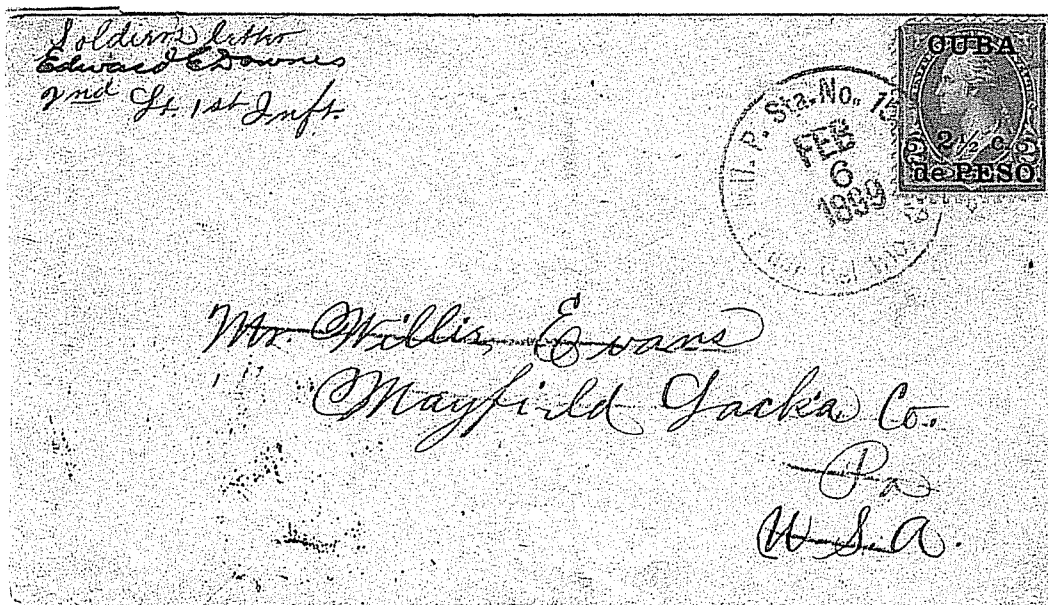 Soldier's letter
Edward E Downes
2nd Lt. 1st Inft.
CUBA
2½ c.
de PESO.
P. Sta. No. 1
FEB
6
1899
Mr. Willis Evans
Mayfield Lacka Co.
Pa
U.S.A.